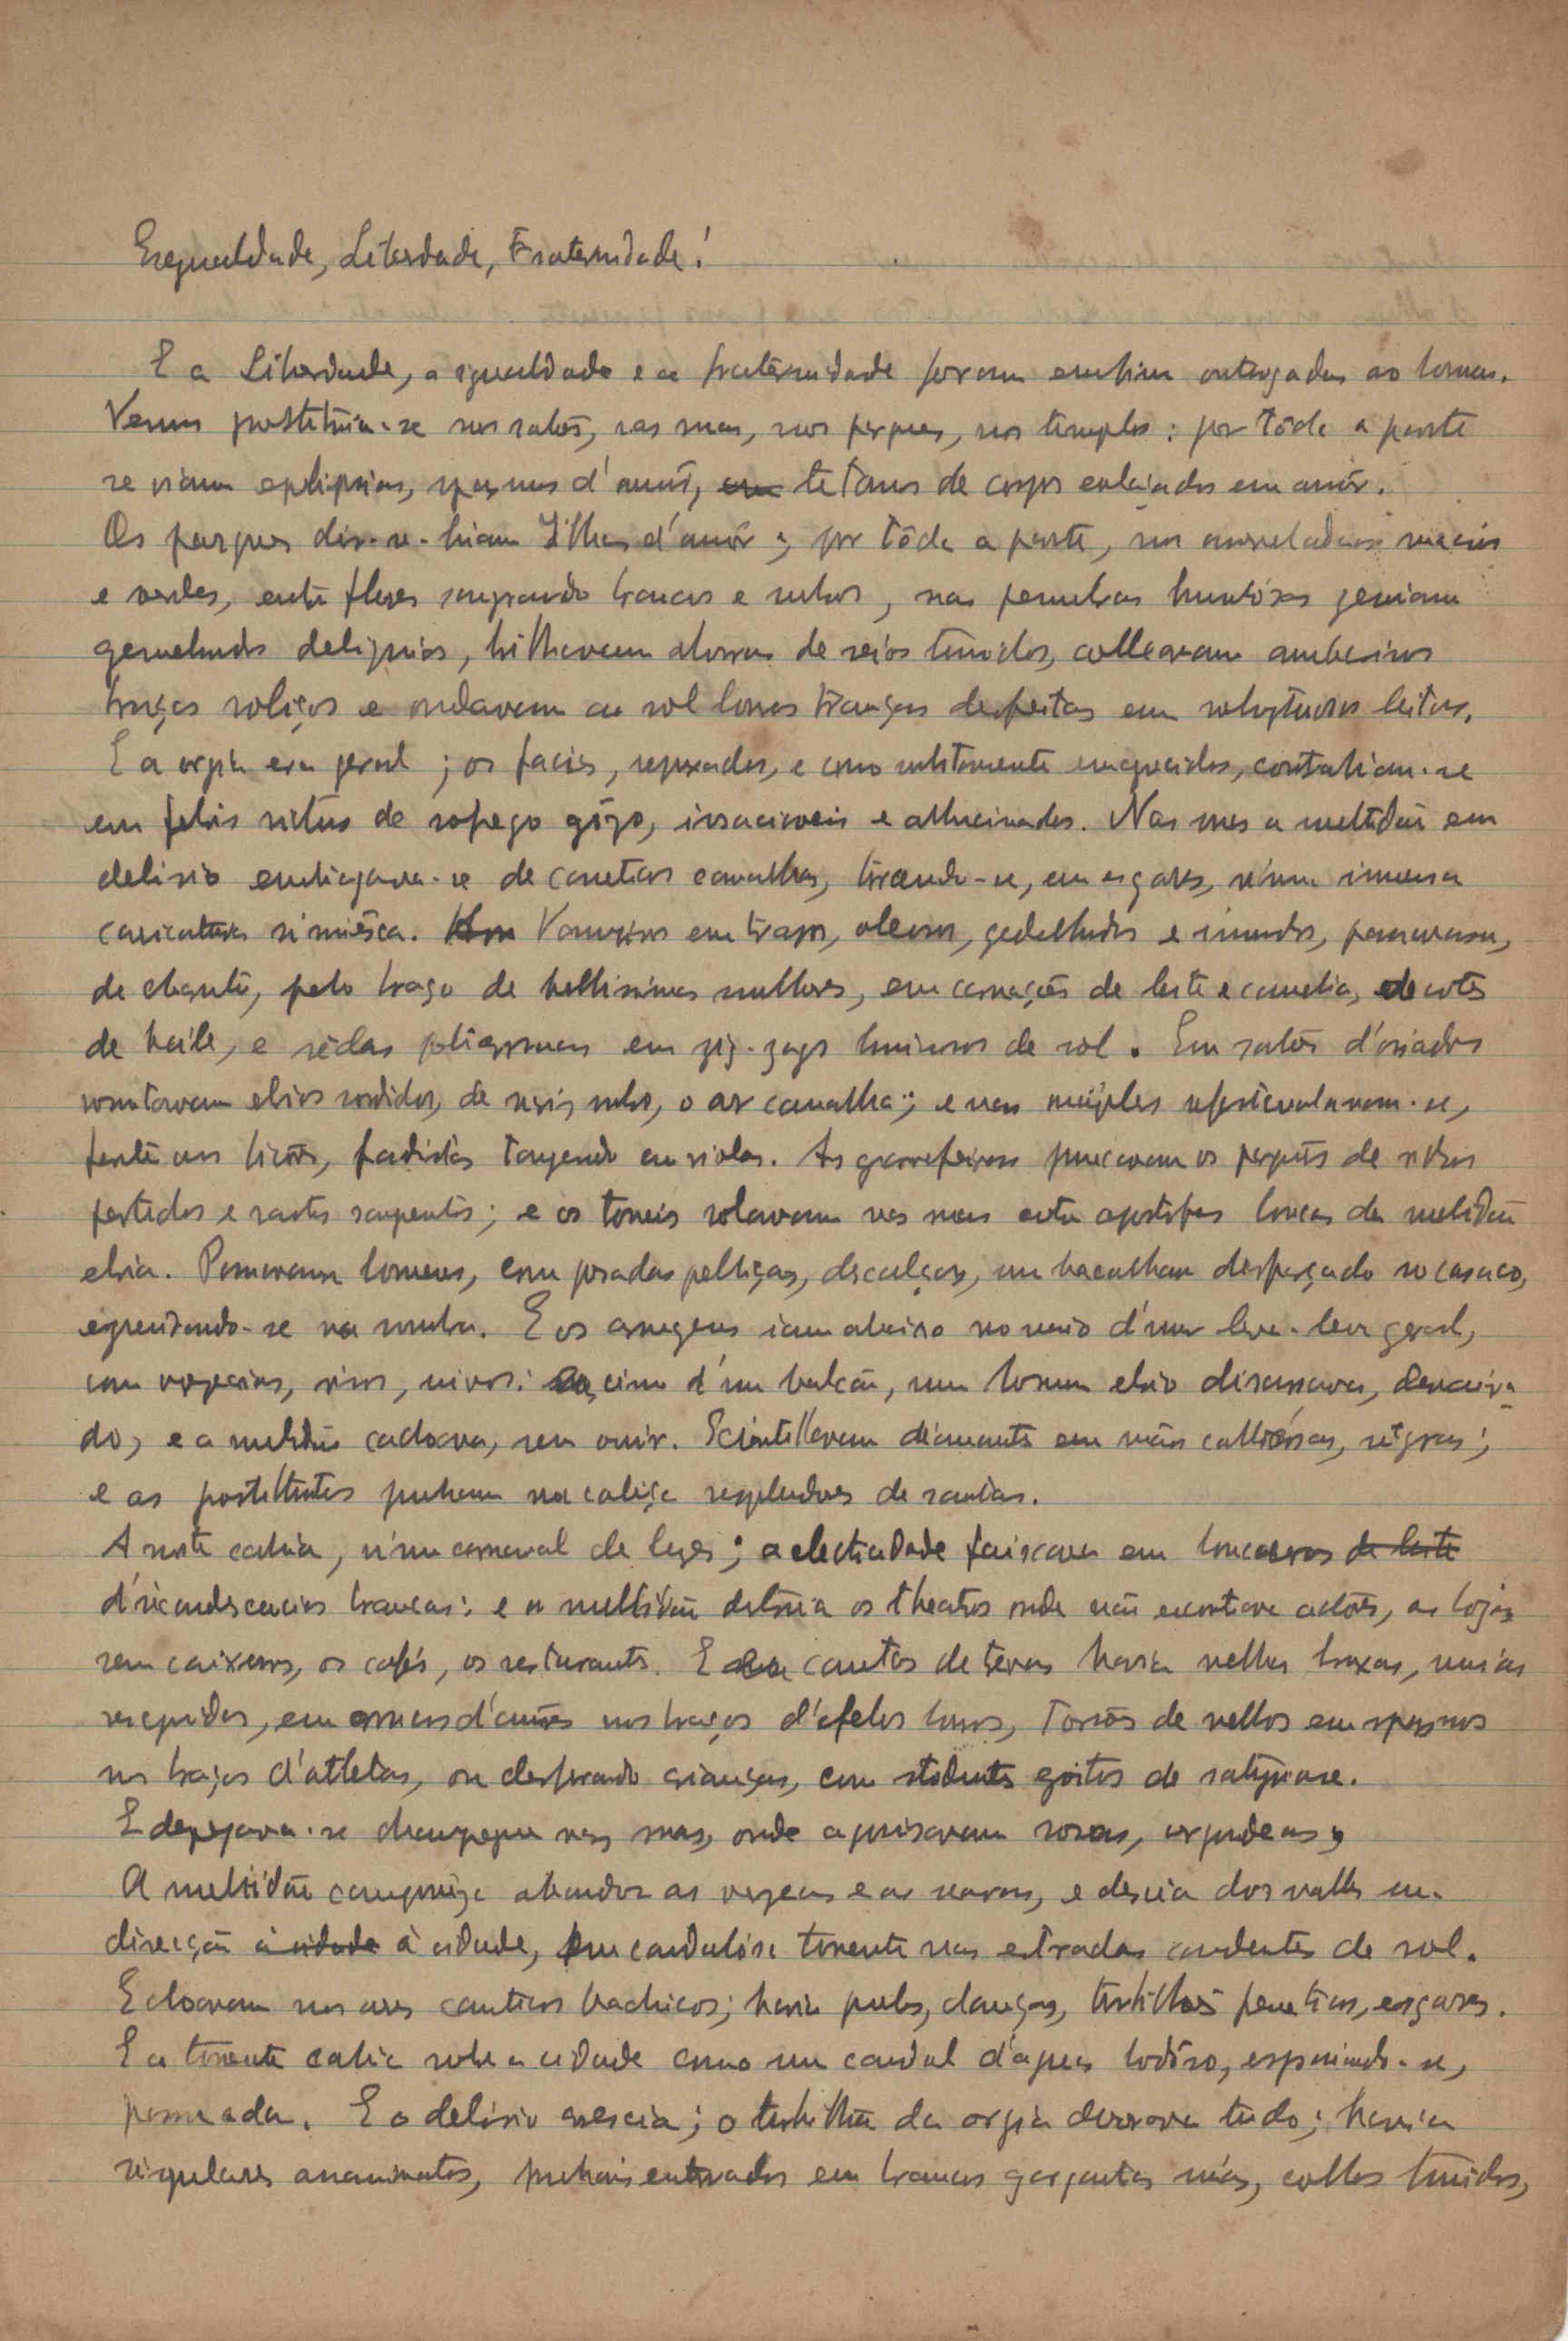 Egualdade, Liberdade, Fraternidade!
E a Liberdade, a igualdade e a fraternidade foram emfim outorgadas ao homem.
Venus prostituia-se nos salões, nas ruas, nos parques, nos templos: por tôda a parte
se viam epilepsias, espasmos d'amôr, tetanos de corpos enlaçados em amôr.
Os parques dir-se-hiam Ilhas d'amôr e, por tôda a parte, nos macios
e verdes, entre flores sangrando brancas e rubras, nas penumbras gemiam
deliquios, brilhavam alvuras de seios tumidos, colleavam
braços roliços e ondavam ao sol louras tranças desfeitas em voluptuosos leitos.
E a orgia era geral; os facies, repuxados, e como subitamente emagrecidos, contrahiam-se
em rictus de gôzo, insaciaveis e allucinados. Nas ruas a multidão em
delirio embriagava-se de canalhas, em esgares, n'uma imensa
caricatura simiêsca. em trapos, gadelhudos e imundos, passavam,
de charuto, pelo braço de bellissimas mulheres, em carnações de leite e camelia, decotes
de baile, e sêdas em zig-zags luminosos de sol. Em salões d'
ebrios sordidos, de nariz rubro, o ar canalha; e nos refastelavam-se,
fadistas tangendo em violas. As garrafeiras os parquets de vidros
partidos e rastos sangrentos; e os toneis rolavam nas ruas entre apostrofes loucas da multidão
ebria. Passavam homens, com pesadas pelliças, descalços, um bacalhau desfarçado no casaco,
na sombra. E os armazens iam abaixo no meio d'um leva-leva geral,
com risos, vivos: cimo d'um balcão, um homem ebrio discursava, desvaira-
do, e a multidão cachoava, sem ouvir. Scintillavam diamantes em mãos callósas, négras;
e as prostitutas punham na caliça resplendores de santas.
A noite cahia, n'um carnaval de luzes; a electricidade faiscava em
d'incandescencias brancas: e a multidão os theatros onde não encontrava actôres, as lojas
sem caixeiros, os cafés, os restaurants. E cantos de trevas havia velhas bruxas, nuas
resequidas, em d'amôr nos braços d'efebos louros, torsos de velhos em espasmos
nos braços d'atletas, ou desflorando crianças, com gritos de
E despejava-se champagne nas ruas, onde rosas, orquideas,
A multidão campesina abandona as vargens e as searas, e descia dos valles em
direcção à cidade à cidade, em caudalósa torrente nas estradas candentes de sol.
Echoavam nos ares canticos bachicos; havia danças, turbilhões freneticos, esgares.
E a torrente cahia sobre a cidade como um caudal d'aguas lodôso, espraiando-se,
E o delirio crescia; o turbilhão da orgia tudo; havia
singulares assassinatos, punhais enterrados em brancas gargantas núas, collos tumidos,